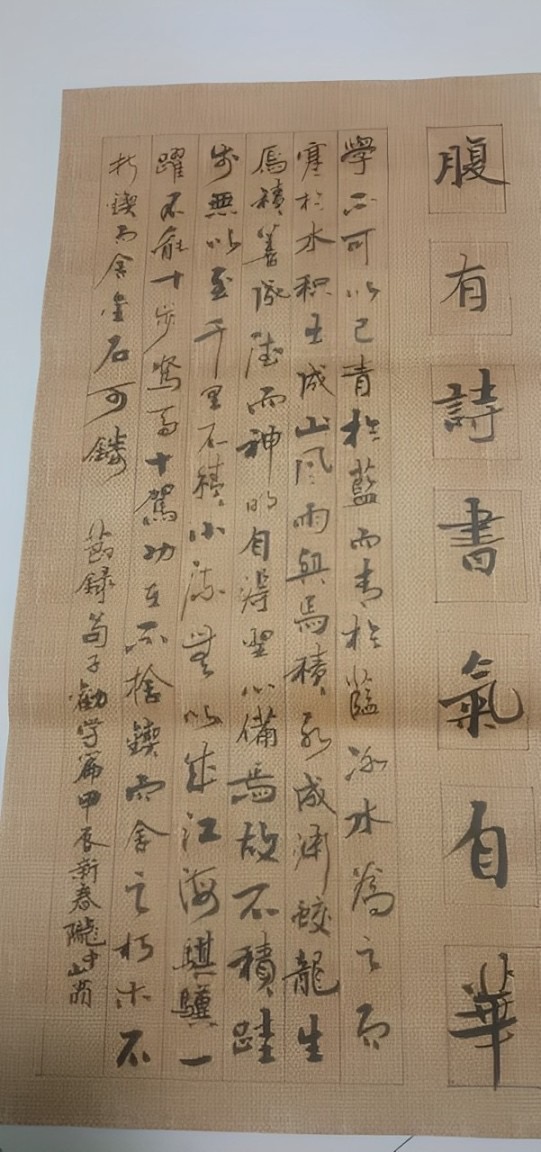 腹有詩書氣自華
學不可以已青於藍而青於藍冰水為之而
寒於水积土成山风雨與焉積水成渊蛟龍生
焉積善成德而神明自得聖心備焉故不積跬
步無以至千里不積小流無以成江海騏驥一
躍不能十步駑馬十駕功在不捨鍥而舍之朽木不
折鍥而舍金石可鏤
節録荀子勸学篇甲辰新春隴中山翁